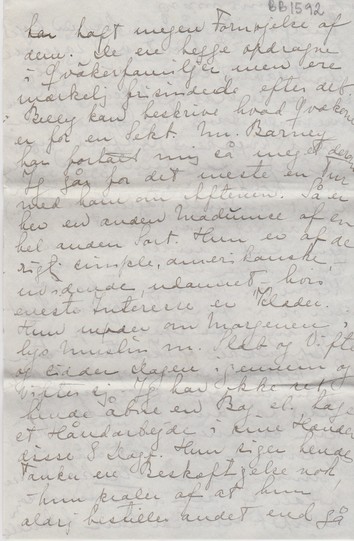 BB1592
har haft megen Fornøjelse af
dem. De ere begge opdragne
i Qvækerfamiljer men ere
mærkelig frisindede efter det.
Betty kan beskrive hvad Qvækere
er for en Sekt. Mr. Barney
har fortalt mig så meget derom
Jeg går for det meste en Tur
med ham om Aftenen. Så er
her en anden Madamme af en
hel anden Sort. Hun er af de
rigtig simple, amerikanske,
uvidende, udannet hvis
eneste Interesse er Klæder.
Hun møder om Morgenen i
lyst Muslin m. og Vifte
og sidder dagen igennem og
vifter sig. Jeg har ikke set
hende åbne en Bog el. tage
et Håndarbejde i sine Hænder
disse 8 Dage. Hun siger hendes
Tanker ere Beskæftigelse nok
- hun praler af at hun
aldrig bestiller andet end gå